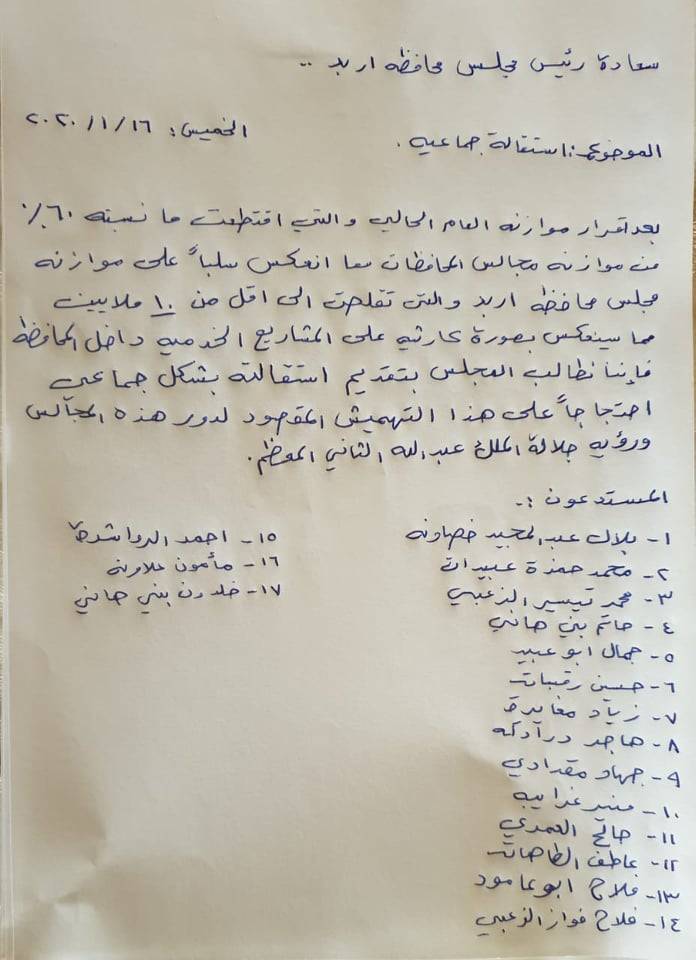 سعادة رئيس مجلس محافظه اربد ..
الخميس: ٢٠٢٠/١/١٦
الموضوع: استقالة جماعيه .
بعد اقرار موازنه العام الحالي والتي اقتطعت ما نسبته ٦٠٪
من موازنه مجالس المحافظات مما انعكس سلباً على موازنه
مجلس محافظه اربد والتي تقلصت الى اقل من ١٠ ملايين
مما سينعكس بصورة كارثيه على المشاريع الخدميه داخل المحافظه
فإننا نطالب المجلس بتقديم استقالته بشكل جماعي
احتجاجاً على هذا التهميش المقصود لدور هذه المجالس
ورؤيه جلالة الملك عبدالله الثاني المعظم.
المستدعون :-
١- بلال عبدالمجيد خصاونه
٢- محمد حمزة عبيدات
٣- محمد تيسير الزعبي
٤- حاتم بني هاني
٥- جمال ابو عبيد
٦- حسين رقيبات
٧- زياد مغايرة
٨- هاجر درادكه
٩- جهاد مقدادي
١٠- منير غرايبه
١١- صالح العمري
١٢- عاطف الطاهات
١٣- فلاح ابو عامود
١٤- فلاح فواز الزعبي
١٥- احمد الرواشدة
١٦- مأمون علاونه
١٧- خلدون بني هاني